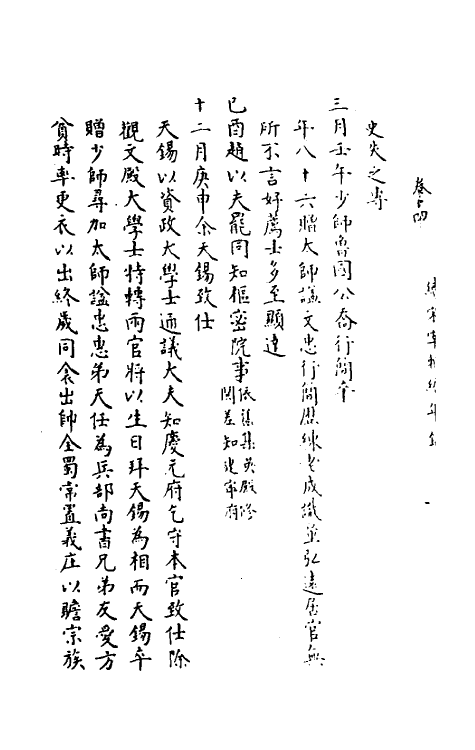 卷十四
續宋宰輔編年錄
史失之耳
三月壬午少師魯國公喬行簡卒
年八十六贈太師諡文忠行簡歷練老成識量弘遠居官無
所不言好薦士多至顯達
己酉趙以夫罷同知樞密院事依舊集英殿修
閑差知建寧府
十二月庚申余天錫致仕
天錫以資政大學士通議大夫知慶元府乞守本官致仕除
觀文殿大學士特轉兩官將以生日拜天錫為相而天錫卒
贈少師尋加太師諡忠惠弟天任為兵部尚書兄弟友愛方
貧時率更衣以出終歲同衾出帥全蜀常置義庄以贍宗族